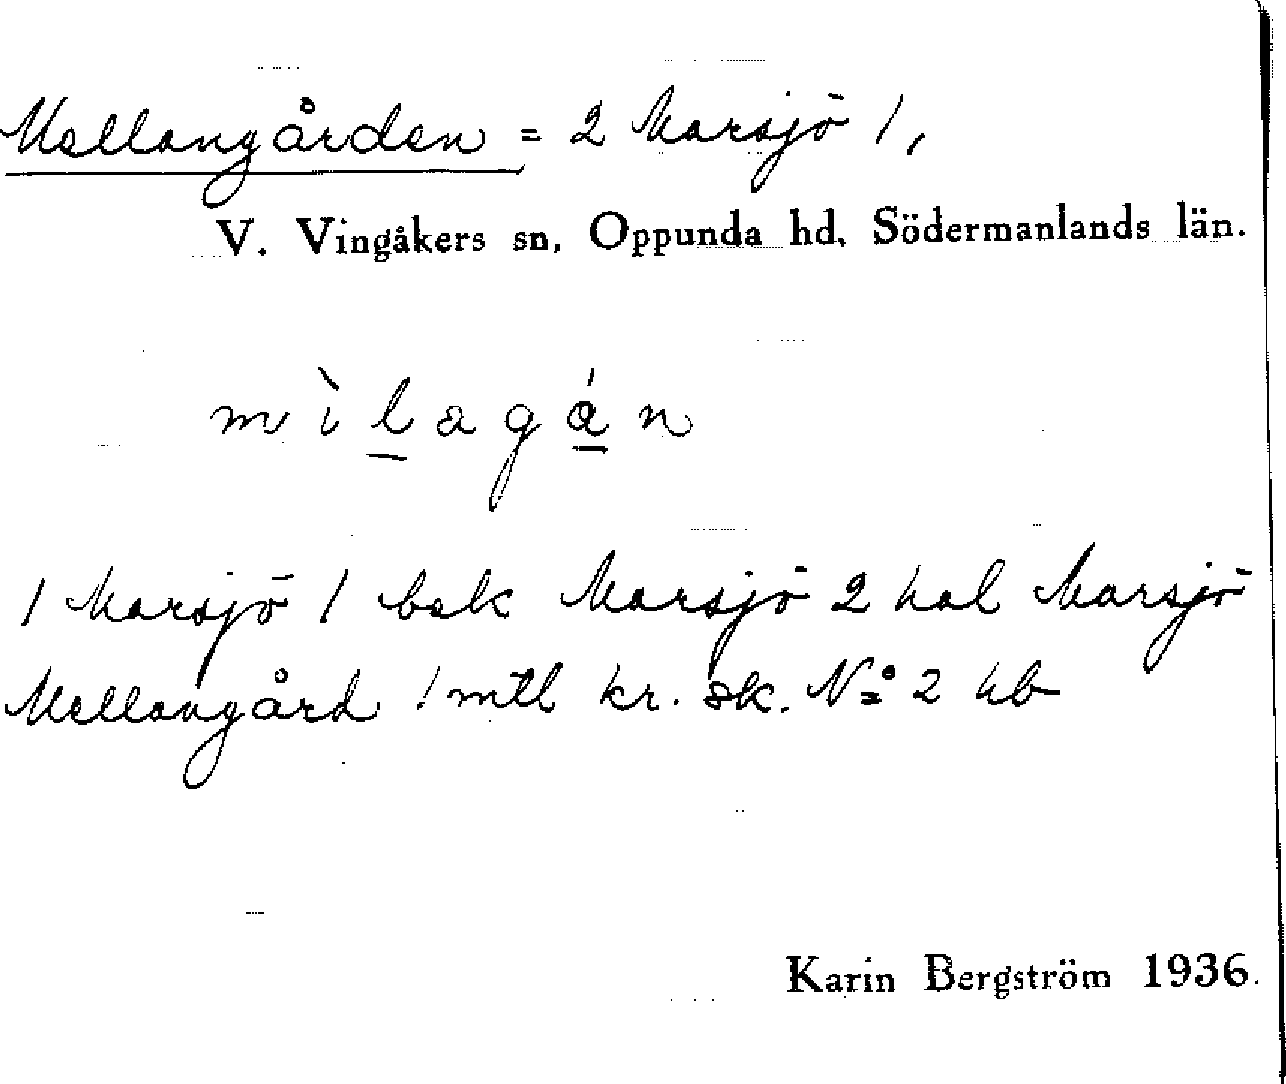 Mellangården = 2 Marsjö 1,
V. Vingåkers sn, Oppunda hd, Södermanlands län.
m ì l a g á n
1 Marsjö 1 bek Marsjö 2 hal Marsjö
Mellangård 1 mtl kr. sk. Nº 2 hb
Karin Bergström 1936.